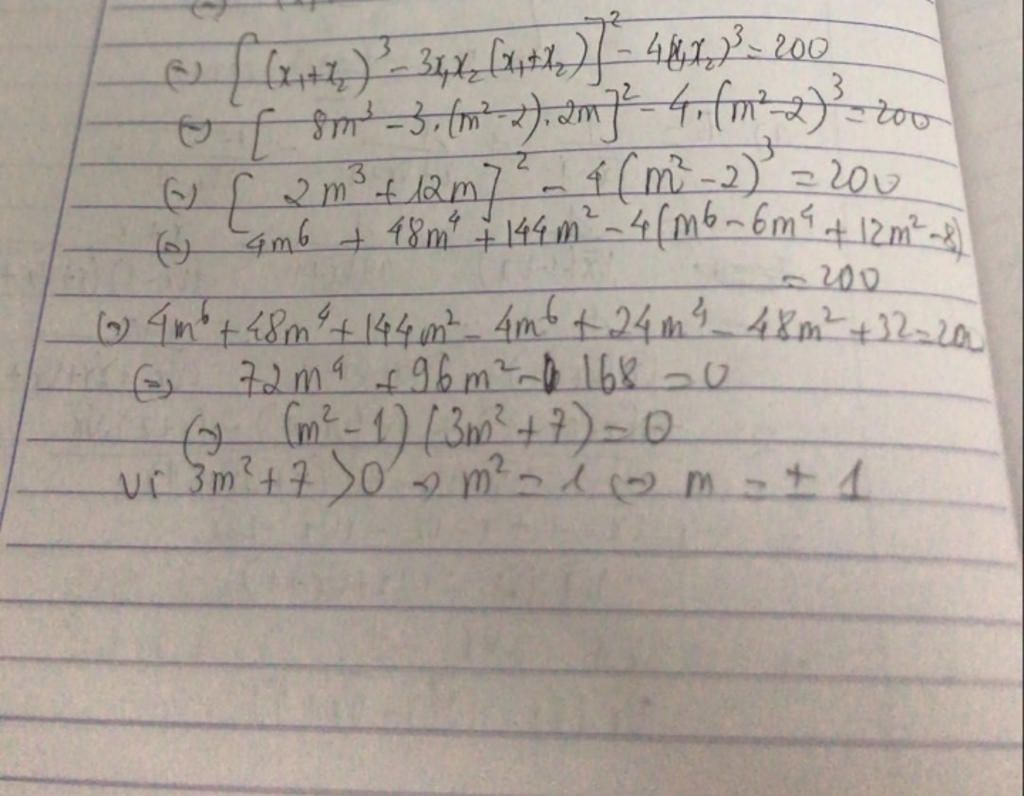 (=) [(x₁+x₂)³ - 3x₁x₂(x₁+x₂)]² - 4(x₁x₂)³ = 200
(=) [8m³ - 3.(m²-2).2m]² - 4.(m²-2)³ = 200
(=) [2m³ + 12m]² - 4(m²-2)³ = 200
(=) 4m⁶ + 48m⁴ + 144m² - 4(m⁶ - 6m⁴ + 12m² - 8)
= 200
(=) 4m⁶ + 48m⁴ + 144m² - 4m⁶ + 24m⁴ - 48m² + 32 = 200
(=) 72m⁴ + 96m² - 168 = 0
(=) (m² - 1)(3m² + 7) = 0
Vì 3m² + 7 > 0 => m² = 1 (=) m = ± 1